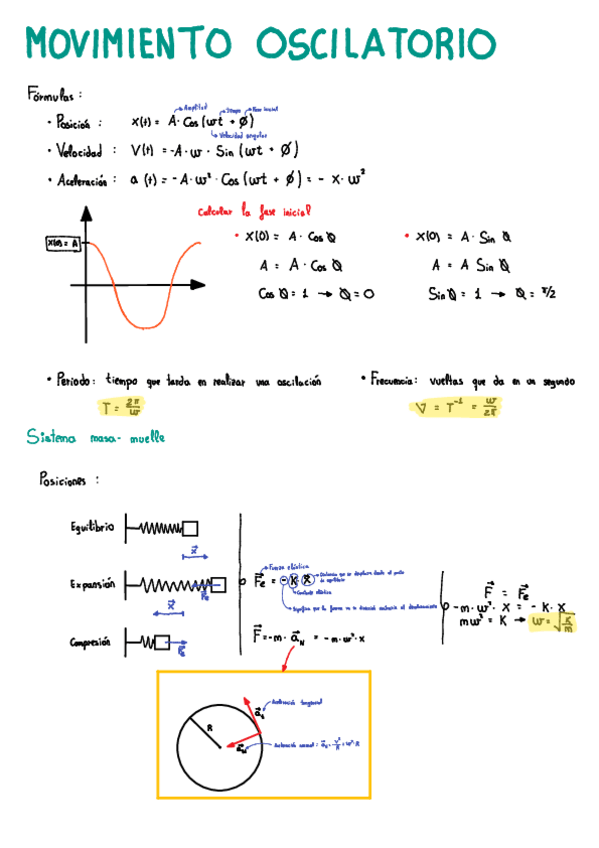 MOVIMIENTO OSCILATORIO
Fórmulas :
Amplitud
Tiempo
Fase inicial
• Posición : X(t) = A · Cos (wt + Ø)
Velocidad angular
• Velocidad : V(t) = -A · w · Sin (wt + Ø)
• Aceleración : a (t) = - A · w² · Cos (wt + Ø) = - x · w²
Calcular la fase inicial
X(0) = A
• X(0) = A · Cos Ø
A = A · Cos Ø
Cos Ø = 1 → Ø = 0
• X(0) = A · Sin Ø
A = A Sin Ø
Sin Ø = 1 → Ø = π/2
• Periodo : tiempo que tarda en realizar una oscilación
T = 2π/w
• Frecuencia : vueltas que da en un segundo
V = T⁻¹ = w/2π
Sistema masa- muelle
Posiciones :
Equilibrio
x⃗
Expansión
F⃗e
x⃗
Compresión
F⃗e
Fuerza elástica
F⃗e = - K · x⃗
Distancia que se desplaza desde el punto de equilibrio
Constante elástica
Significa que la fuerza va en dirección contraria al desplazamiento
F⃗ = -m · a⃗N = - m · w² · x
F⃗ = F⃗e
- m · w² · x = - K · x
mw² = K → w = √K/m
R
Aceleración tangencial
a⃗t
a⃗N
Aceleración normal : a⃗N = v²/R = w² · R